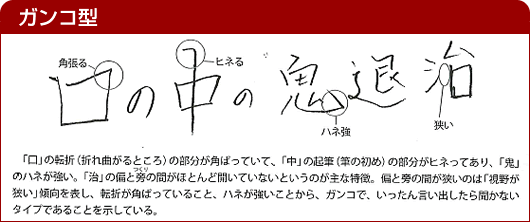 ガンコ型
角張る
ヒネる
口の中の鬼退治
ハネ強
狭い
「口」の転折（折れ曲がるところ）の部分が角ばっていて、「中」の起筆（筆の初め）の部分がヒネってあり、「鬼」
のハネが強い。「治」の偏と旁の間がほとんど開いていないというのが主な特徴。偏と旁の間が狭いのは「視野が
つくり
狭い」傾向を表し、転折が角ばっていること、ハネが強いことから、ガンコで、いったん言い出したら聞かない
タイプであることを示している。